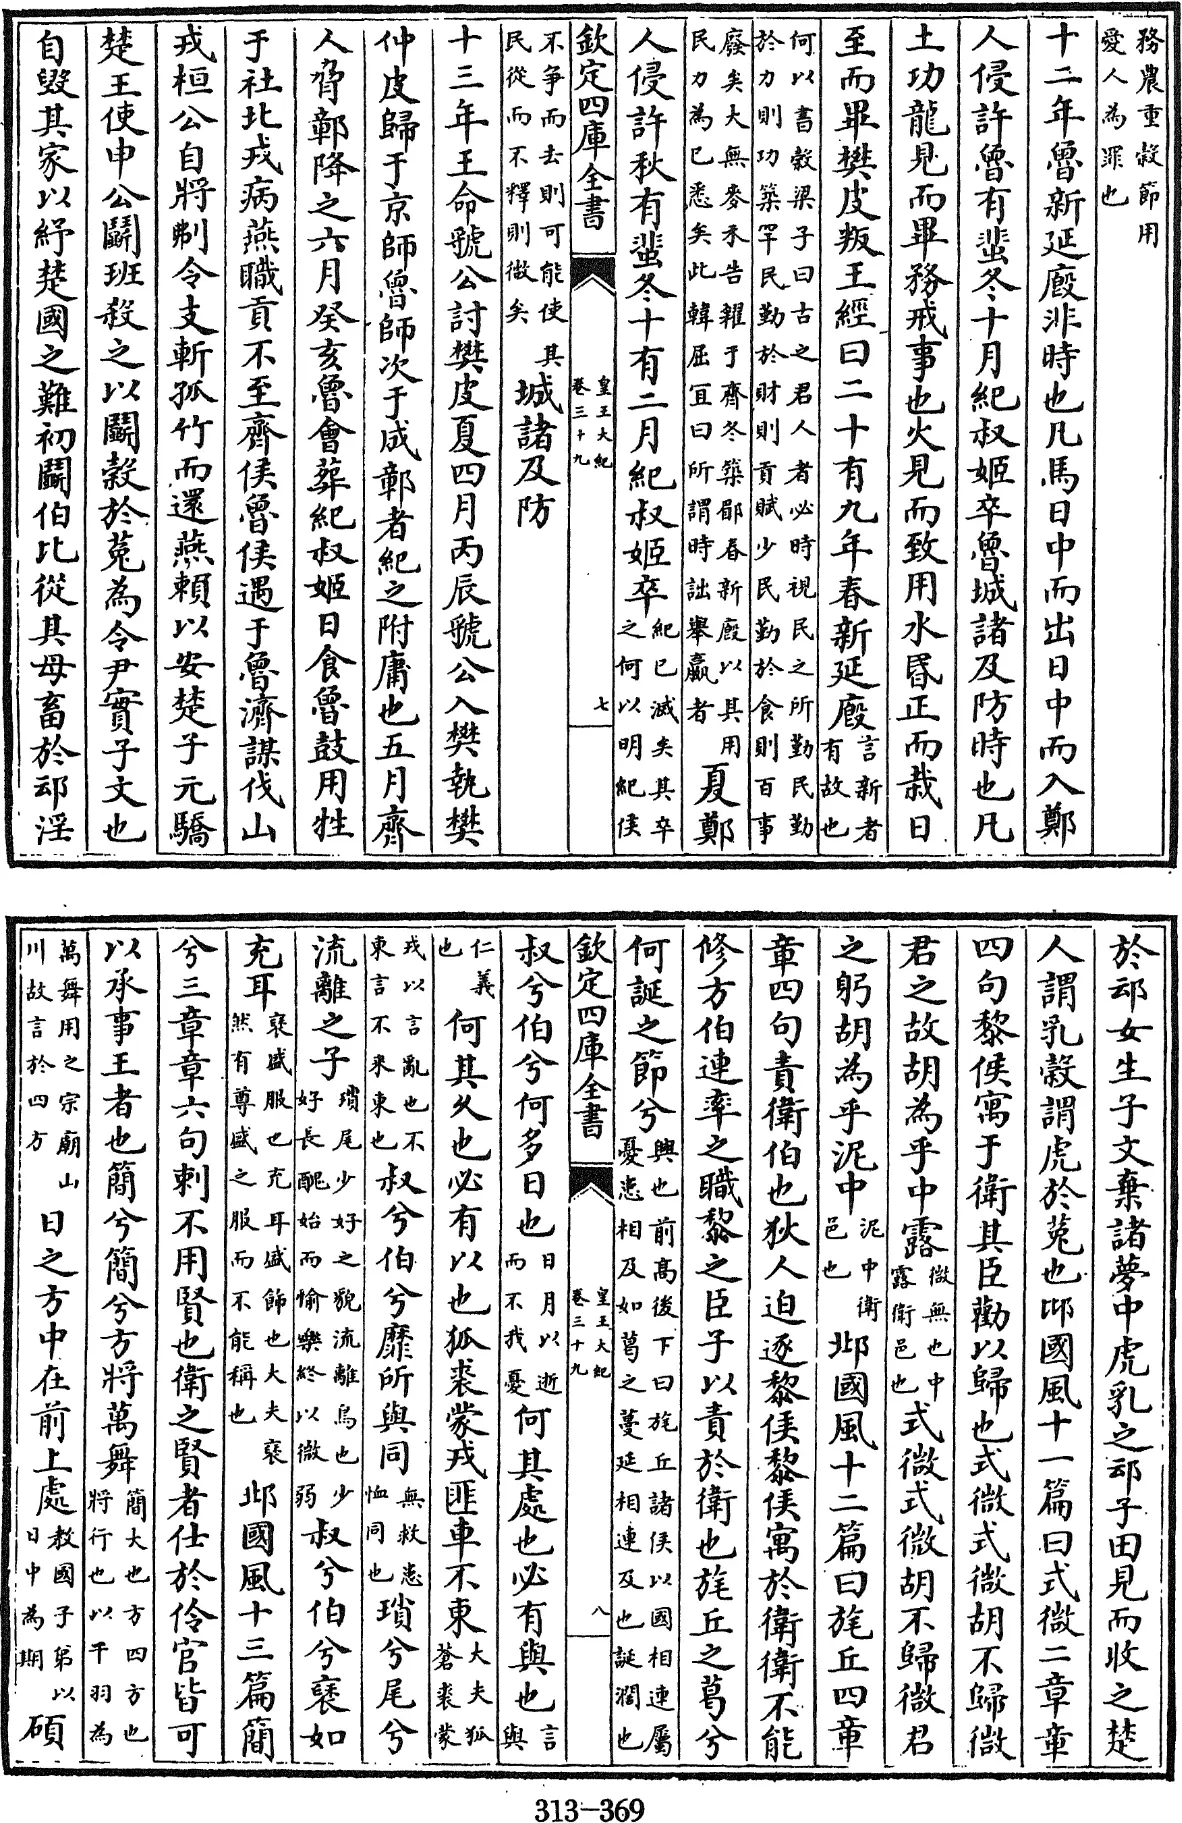 務農重榖節用
愛人為罪也
十二年魯新延廏非時也凡馬日中而出日中而入鄭
人侵許魯有蜚冬十月紀叔姬卒魯城諸及防時也凡
土功龍見而畢務戒事也火見而致用水昏正而栽日
至而畢樊皮叛王經曰二十有九年春新延廏言新者有故也
何以書榖梁子曰古之君人者必時視民之所勤民勤
於力則功築罕民勤於財則貢賦少民勤於食則百事
廢矣大無麥禾告糴于齊冬築郿春新廏以其用民力為已悉矣此韓屈宜臼所謂時詘舉贏者夏鄭
人侵許秋有蜚冬十有二月紀叔姬卒紀已滅矣其卒之何以明紀侯
欽定四庫全書
皇王大紀
卷三十九
七
不争而去則可能使其民從而不釋則微矣城諸及防
十三年王命虢公討樊皮夏四月丙辰虢公入樊執樊
仲皮歸于京師魯師次于成鄣者紀之附庸也五月齊
人脅鄣降之六月癸亥魯會葬紀叔姬日食魯鼓用牲
于社北戎病燕職貢不至齊侯魯侯遇于魯濟謀伐山
戎桓公自將剸令支斬孤竹而還燕賴以安楚子元驕
楚王使申公鬭班殺之以鬭榖於菟為令尹實子文也
自毀其家以紓楚國之難初鬭伯比從其母畜於䢵淫
於䢵女生子文棄諸夢中虎乳之䢵子田見而收之楚
人謂乳榖謂虎於菟也邶國風十一篇曰式微二章章
四句黎侯寓于衛其臣勸以歸也式微式微胡不歸微
君之故胡為乎中露微無也中露衛邑也式微式微胡不歸微君
之躬胡為乎泥中泥中衛邑也邶國風十二篇曰旄丘四章
章四句責衛伯也狄人迫逐黎侯黎侯寓於衛衛不能
修方伯連率之職黎之臣子以責於衛也旄丘之葛兮
何誕之節兮興也前髙後下曰旄丘諸侯以國相連屬憂患相及如葛之蔓延相連及也誕濶也
欽定四庫全書
皇王大紀
卷三十九
八
叔兮伯兮何多日也日月以逝而不我憂何其處也必有與也言與
仁義也何其久也必有以也狐裘蒙戎匪車不東大夫狐蒼裘蒙
戎以言亂也不東言不来東也叔兮伯兮靡所與同無救患恤同也瑣兮尾兮
流離之子瑣尾少好之貌流離鳥也少好長醜始而愉樂終以微弱叔兮伯兮褎如
充耳褎盛服也充耳盛飾也大夫褎然有尊盛之服而不能稱也邶國風十三篇簡
兮三章章六句刺不用賢也衛之賢者仕於伶官皆可
以承事王者也簡兮簡兮方將萬舞簡大也方四方也將行也以干羽為
萬舞用之宗廟山川故言於四方日之方中在前上處教國子弟以日中為期碩
313-369